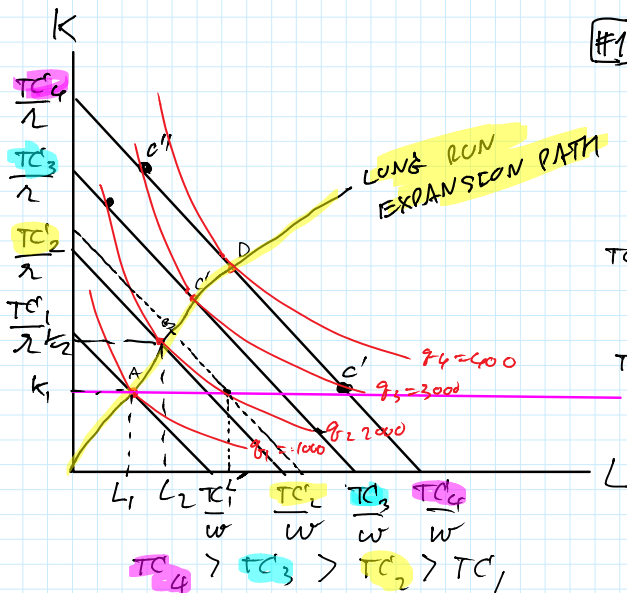 K
#1
TC₄/r
TC₃/r
TC₂/r
TC₁/r
K₂
K₁
C''
LONG RUN
EXPANSION PATH
D
C'
B
A
C'
q₄=400
q₃=3000
q₂ 2000
q₁=1000
TC
T
L₁ L₂ TC₁/w TC₂/w TC₃/w TC₄/w
L
TC₄ > TC₃ > TC₂ > TC₁